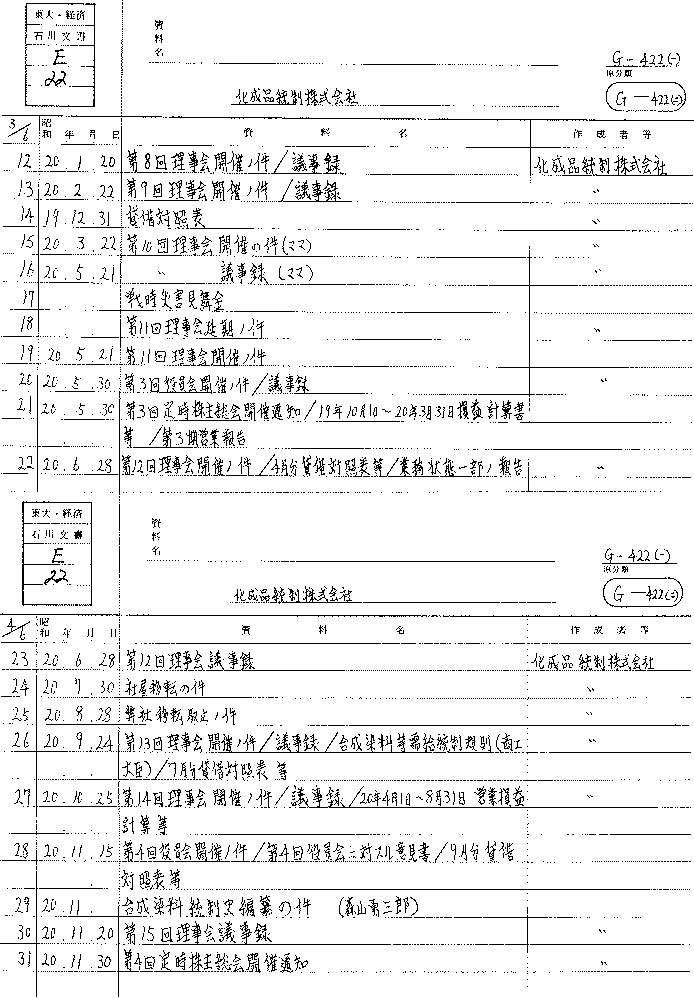 東大・経済
石川文書
E
22
資料名
化成品統制株式会社
G-422(-)
原分類
G-422(-)
3/6 昭和 年 月 日 資 料 名 作成者等
12 20. 1. 20 第8回理事会開催ノ件/議事録 化成品統制株式会社
13 20. 2. 22 第9回理事会開催ノ件/議事録 〃
14 19. 12. 31 貸借対照表 〃
15 20. 3. 22 第10回理事会開催の件(ママ) 〃
16 20. 5. 21 〃 議事録(ママ) 〃
17 戦時災害見舞金
18 第11回理事会延期ノ件 〃
19 20. 5. 21 第11回理事会開催ノ件
20 20. 5. 30 第3回役員会開催ノ件/議事録 〃
21 20. 5. 30 第3回定時株主総会開催通知/19年10月1日~20年3月31日損益計算書
等 /第3期営業報告
22 20. 6. 28 第12回理事会開催ノ件/4月分貸借対照表等/業務状態一部ノ報告 〃
東大・経済
石川文書
E
22
資料名
化成品統制株式会社
G-422(-)
原分類
G-422(-)
4/6 昭和 年 月 日 資 料 名 作成者等
23 20. 6. 28 第12回理事会議事録 化成品統制株式会社
24 20. 7. 30 社屋移転の件 〃
25 20. 8. 28 弊社移転取止ノ件 〃
26 20. 9. 24 第13回理事会開催ノ件/議事録/合成染料等需給統制規則(商工 〃
大臣)/7月分貸借対照表 等
27 20. 10. 25 第14回理事会開催ノ件/議事録/20年4月1日~8月31日 営業損益 〃
計算等
28 20. 11. 15 第4回役員会開催ノ件/第4回役員会ニ対スル意見書/9月分貸借
対照表等
29 20. 11. 合成染料統制史編纂の件
30 20. 11. 20 第15回理事会議事録 〃
31 20. 11. 30 第4回定時株主総会開催通知 〃